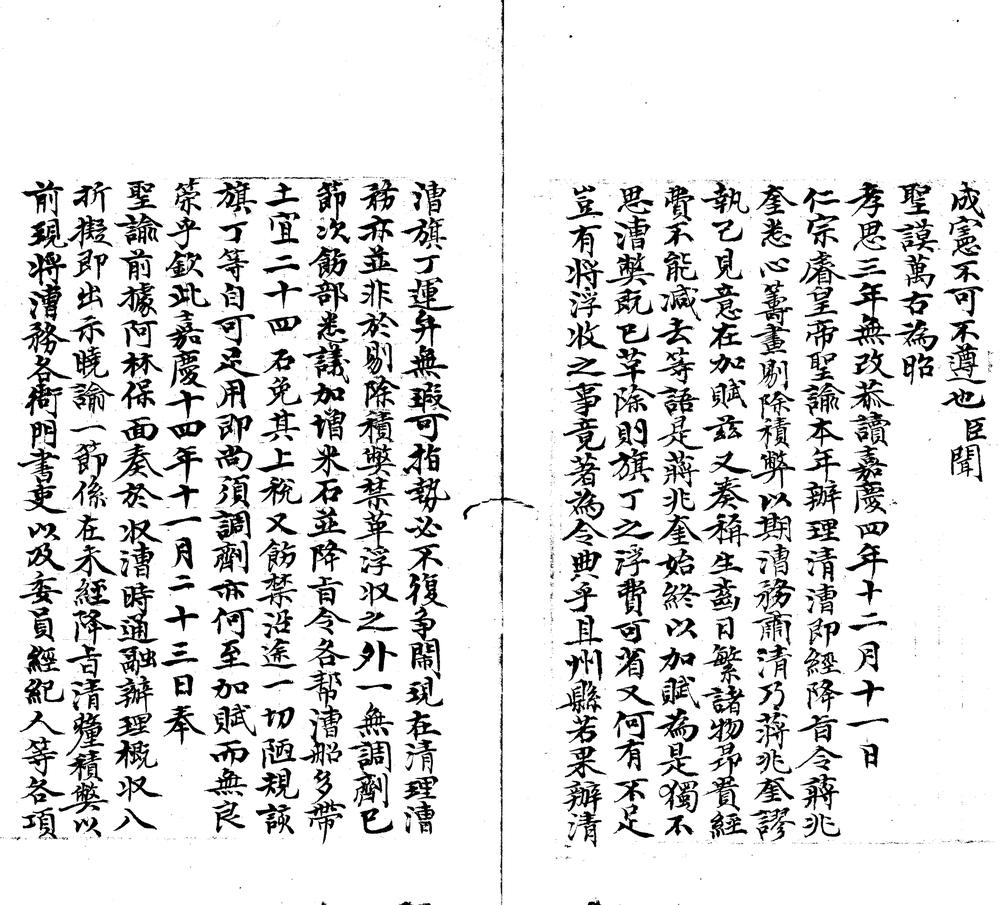 成憲不可不遵也臣聞
聖謨萬古為昭
孝思三年無改恭讀嘉慶四年十二月十一日
仁宗睿皇帝聖諭本年辦理清漕即經降旨令蔣兆
奎悉心籌畫剔除積弊以期漕務肅清乃蔣兆奎謬
執己見意在加賦茲又奏稱生齒日繁諸物昂貴經
費不能減去等語是蔣兆奎始終以加賦為是獨不
思漕獘既已革除則旗丁之浮費可省又何有不足
豈有將浮收之事竟著為令典乎且州縣若果辦清
漕旗丁運弁無瑕可指勢必不復爭鬧現在清理漕
務亦並非於剔除積獘禁革浮收之外一無調劑已
節次飭部悉議加增米石並降旨令各幫漕船多帶
土宜二十四石免其上稅又飭禁沿途一切陋規該
旗丁等自可足用即尚須調劑亦何至加賦而無良
策乎欽此嘉慶十四年十一月二十三日奉
聖諭前據阿林保面奏於収漕時通融辦理概収八
折擬即出示曉諭一節係在未經降旨清釐積獘以
前現將漕務各衙門書吏以及委員經紀人等各項